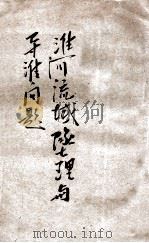 淮河流域地理与
导淮问题
mtoou.info